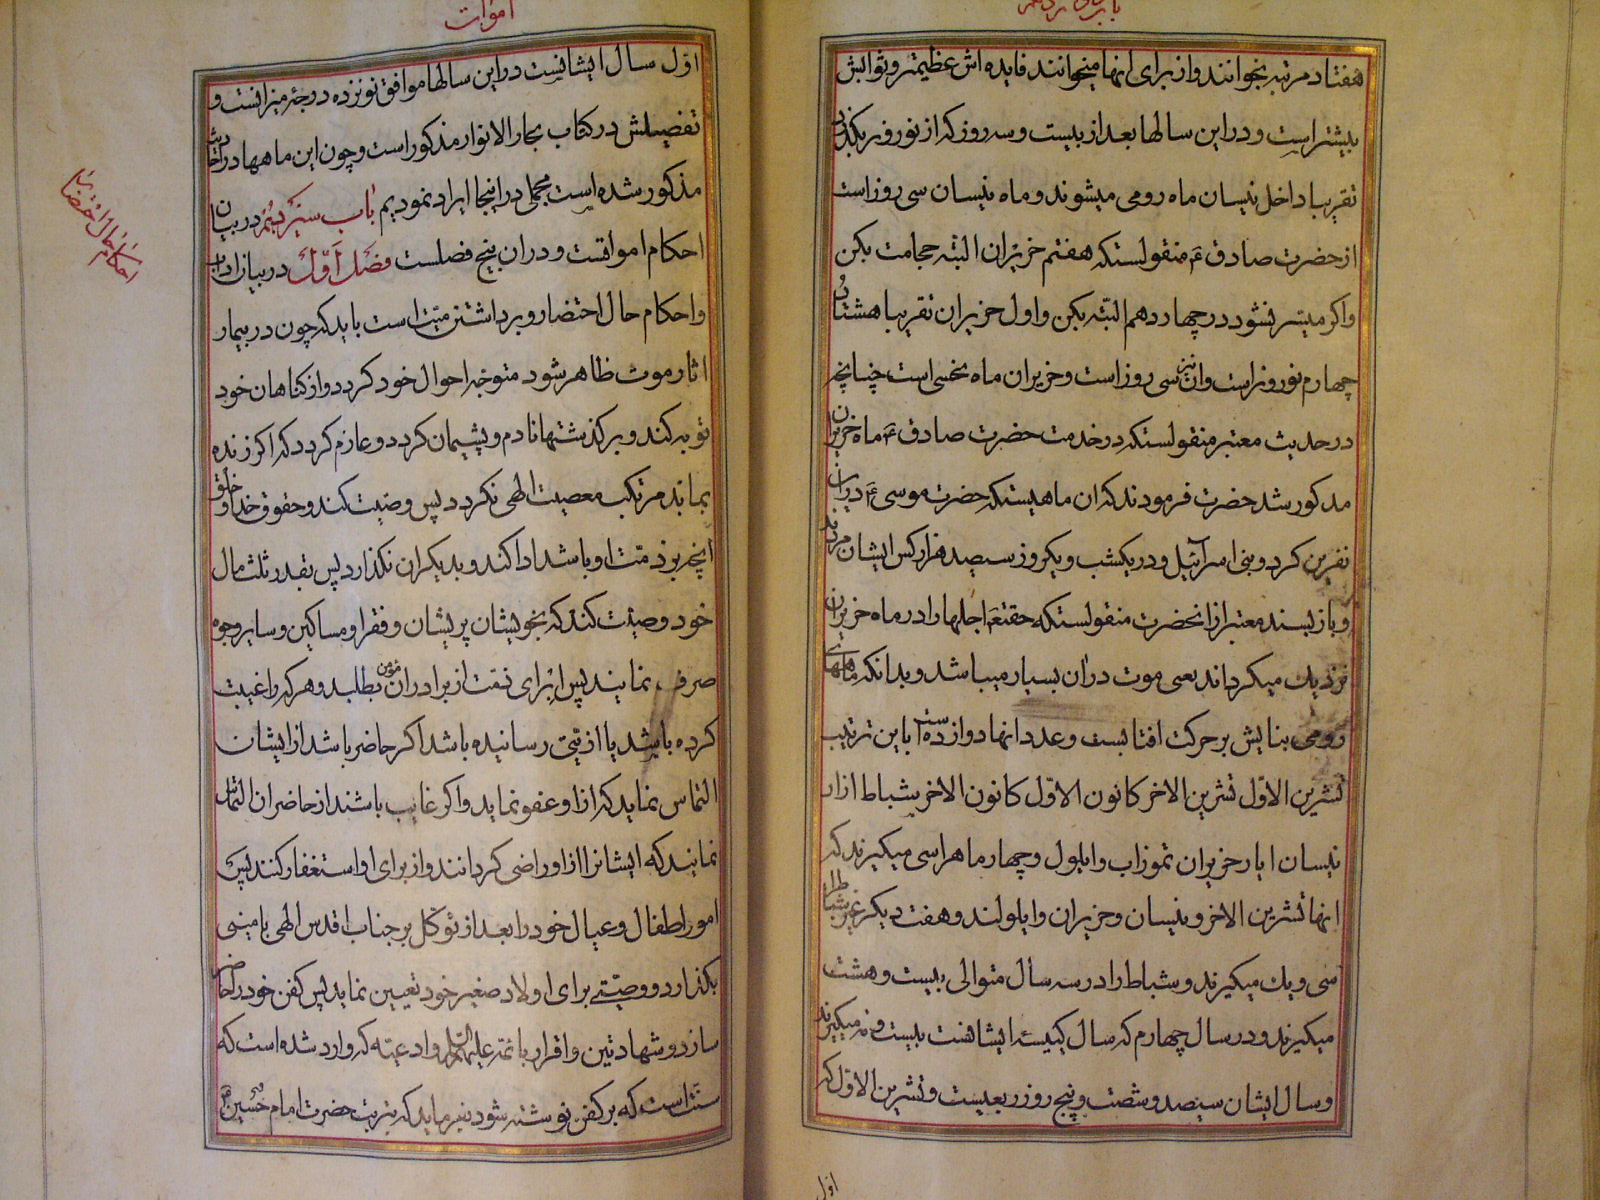 هفتاد مرتبه بخوانند و از برای انها میخوانند فایده اش عظیمتر و ثوابش
بیشتر است و در این سالها بعد از بیست و سه روز که از نوروز بگذرد
تقریبا داخل نیسان ماه رومی میشوند و ماه نیسان سی روز است
از حضرت صادق ع منقولستکه هفتم حزیران البته حجامت بکن
و اکر میسر نشود در چهاردهم البته بکن و اول حزیران تقریبا هشتاد
چهارم نوروز است و ان نیز سی روز است و حزیران ماه نحسی است چنانچه
در حدیث معتبر منقولستکه در خدمت حضرت صادق ع ماه حزیران
مذکور شد حضرت فرمودند که ان ماهیستکه حضرت موسی ع در ان
نفرین کرد و بنی اسرائیل و در یکشب و یکروز سیصد هزار کس ایشان مردند
و باز بسند معتبر از انحضرت منقولستکه حقتعم اجلها را در ماه حزیران
نزدیك میکرداند یعنی موت در ان بسیار میباشد و بدانکه ماههای
رومی بنایش بر حرکت افتابست و عدد انها دوازده است باین ترتیب
تشرین الاول تشرین الاخر کانون الاول کانون الاخر شباط اذار
نیسان ایار حزیران تموز اب و ایلول و چهار ماه را سی میکیرند که
انها تشرین الاخر و نیسان و حزیران و ایلولند و هفت دیکر غیر شباط را
سی و یك میکیرند و شباط را در سه سال متوالی بیست و هشت
میکیرند و در سال چهارم که سال کبیسه ایشانست بیست و نه میکیرند
و سال ایشان سیصد و شصت و پنج روز ربعیست و تشرین الاول که
اول
اموات
اول سال ایشانست در این سالها موافق نوزده درجه میزانست و
تفصیلش در کتاب بحار الانوار مذکور است و چون این ماهها در اخبار
مذکور شده است مجملی در اینجا ایراد نمودیم باب سیزدهم در بیان
احکام امواتست و در ان پنج فصلست فصل اول در بیان اداب
و احکام حال احتضار و برداشتن میت است باید که چون در بیمار
اثار موت ظاهر شود متوجه احوال خود کردد و از کناهان خود
توبه کند و بر کذشتها نادم و پشیمان کردد و عازم کردد که اکر زنده
بماند مرتکب معصیت الهی نکردد پس وصیت کند و حقوق خدا و خلق
انچه بر ذمت او باشد ادا کند و بدیکران نکذارد پس بقدر ثلث مال
خود وصیت کند که بخویشان پریشان و فقرا و مساکین و سایر وجوه
صرف نمایند پس ابرای ذمت از برادران مؤمن بطلبد و هر که را غیبت
کرده باشد یا اذیتی رسانیده باشد اکر حاضر باشد از ایشان
التماس نماید که از او عفو نماید و اکر غایب باشند از حاضران التماس
نمایند که ایشانرا از او راضی کردانند و از برای او استغفار کنند پس
امور اطفال و عیال خود را بعد از توکل بر جناب اقدس الهی بامینی
بکذارد و وصیتی برای اولاد صغیر خود تعیین نماید پس کفن خود را حاضر
سازد و شهادتین و اقرار بائمه علیهم السلام و ادعیه که وارد شده است که
سنت است که بر کفن نوشته شود بفرماید که بتربت حضرت امام حسین ع
احکام حال احتضار